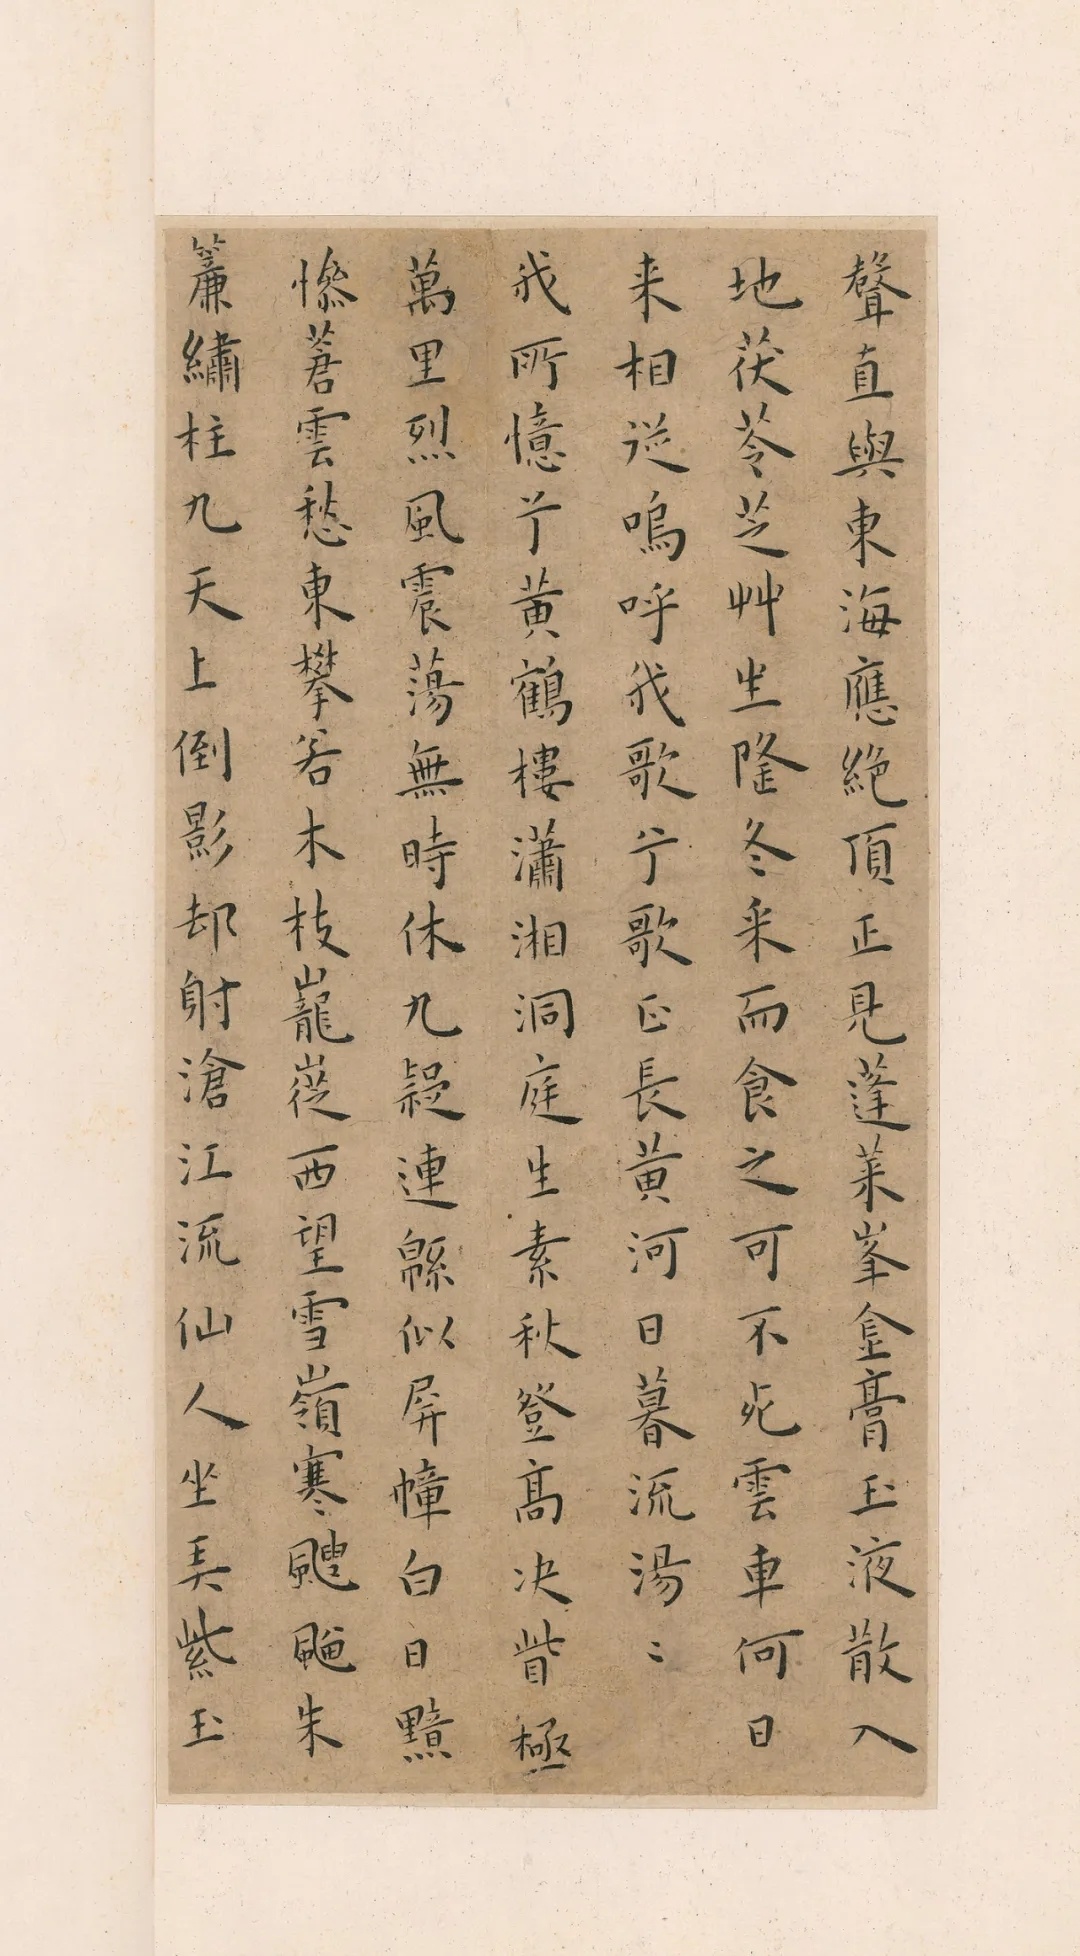 聲直與東海應絶頂正見蓬萊峯金膏玉液散入
地茯苓芝艸生隆冬采而食之可不死雲車何日
来相從嗚呼我歌兮歌正長黄河日暮流湯〻
我所憶兮黄鶴樓瀟湘洞庭生素秋登高决眥極
萬里烈風震蕩無時休九疑連緜似屏幛白日黯
慘蒼雲愁東攀若木枝巃嵸西望雪嶺寒颼飀朱
簾繡柱九天上倒影却射滄江流仙人坐弄紫玉